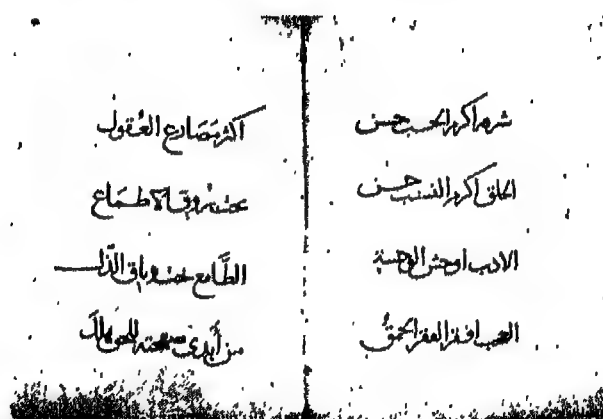 شره اكرم الحسب حسن
الخلق اكرم النسب حسن
الادب اوحش الوحشة
العجب افقر الفقر الحمق
اكثر مَصَارع العُقول
تحت بروق الاطماع
الطَّامع في وثاق الذّل
من أبدى صفحته للحق هلك